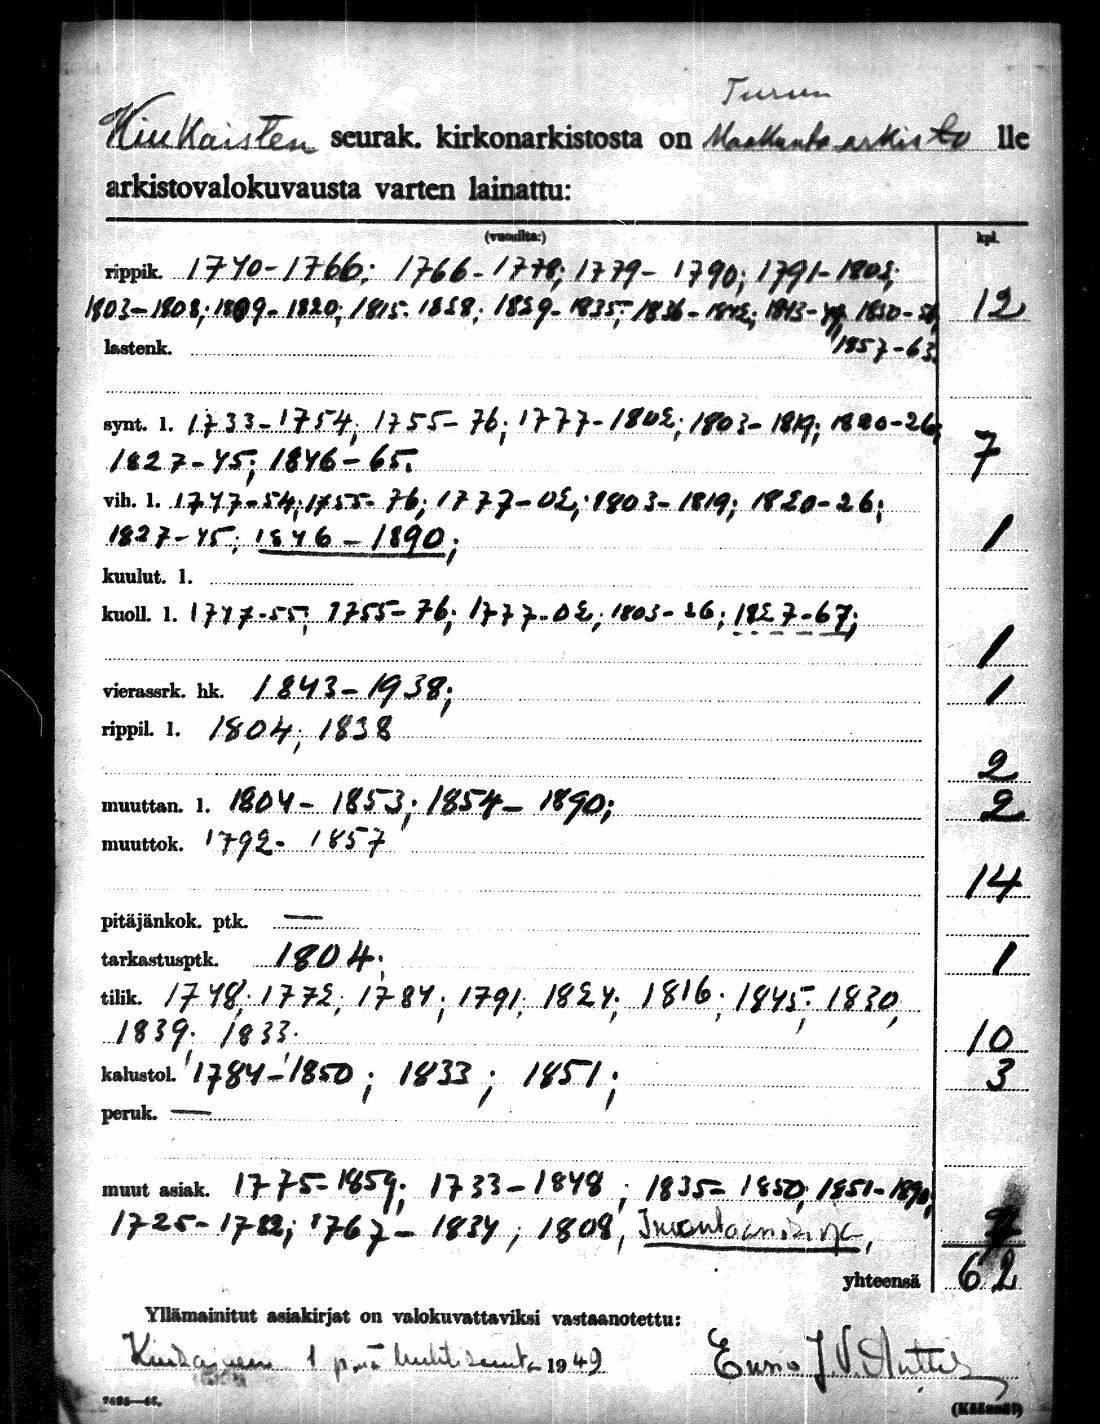 Turun
Kiukaisten seurak. kirkonarkistosta on Maakunta-arkisto lle
arkistovalokuvausta varten lainattu:
(vuosilta:) kpl.
rippik. 1740-1766; 1766-1778; 1779-1790; 1791-1802;
1803-1808; 1809-1820; 1815-1828; 1829-1835; 1836-1842; 1843-49, 1850-56, 12
lastenk. 1857-63.
synt. l. 1733-1754; 1755-76; 1777-1802; 1803-1819; 1820-26;
1827-45; 1846-65. 7
vih. l. 1747-54; 1755-76; 1777-02; 1803-1819; 1820-26;
1827-45; 1846-1890; 1
kuulut. l.
kuoll. l. 1747-55; 1755-76; 1777-02; 1803-26; 1827-67;
1
vierassrk. hk. 1843-1938; 1
rippil. l. 1804; 1838
2
muuttan. l. 1804-1853; 1854-1890; 2
muuttok. 1792-1857
14
pitäjänkok. ptk. —
tarkastusptk. 1804; 1
tilik. 1748; 1772; 1784; 1791; 1824; 1816; 1845; 1830,
1839; 1833. 10
kalustol. 1784-1850; 1833; 1851; 3
peruk. —
muut asiak. 1775-1859; 1733-1848; 1835-1850; 1851-1890,
1725-1782; 1767-1834; 1808,
yhteensä 62
Yllämainitut asiakirjat on valokuvattaviksi vastaanotettu:
Kiukainen 1 p:nä huhtikuuta 1949 Euno J. V. Anttila
(Käännä!)